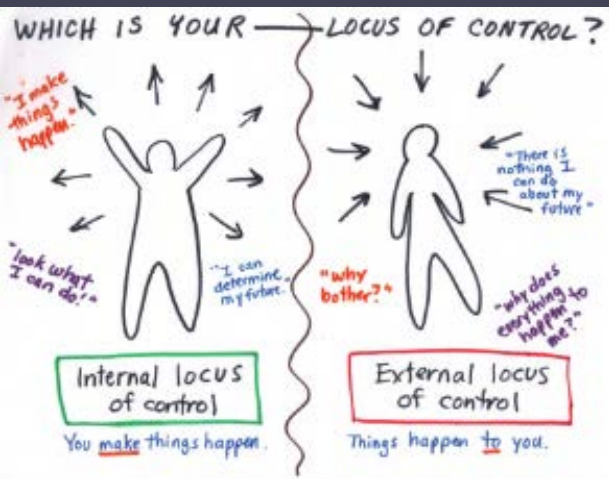 WHICH IS YOUR LOCUS OF CONTROL?
"I make
things
happen."
"look what
I can do!"
"I can
determine
my future."
Internal locus
of control
You make things happen.
"There is
nothing I
can do
about my
future"
"why
bother?"
"why does
everything
happen to
me?"
External locus
of control
Things happen to you.